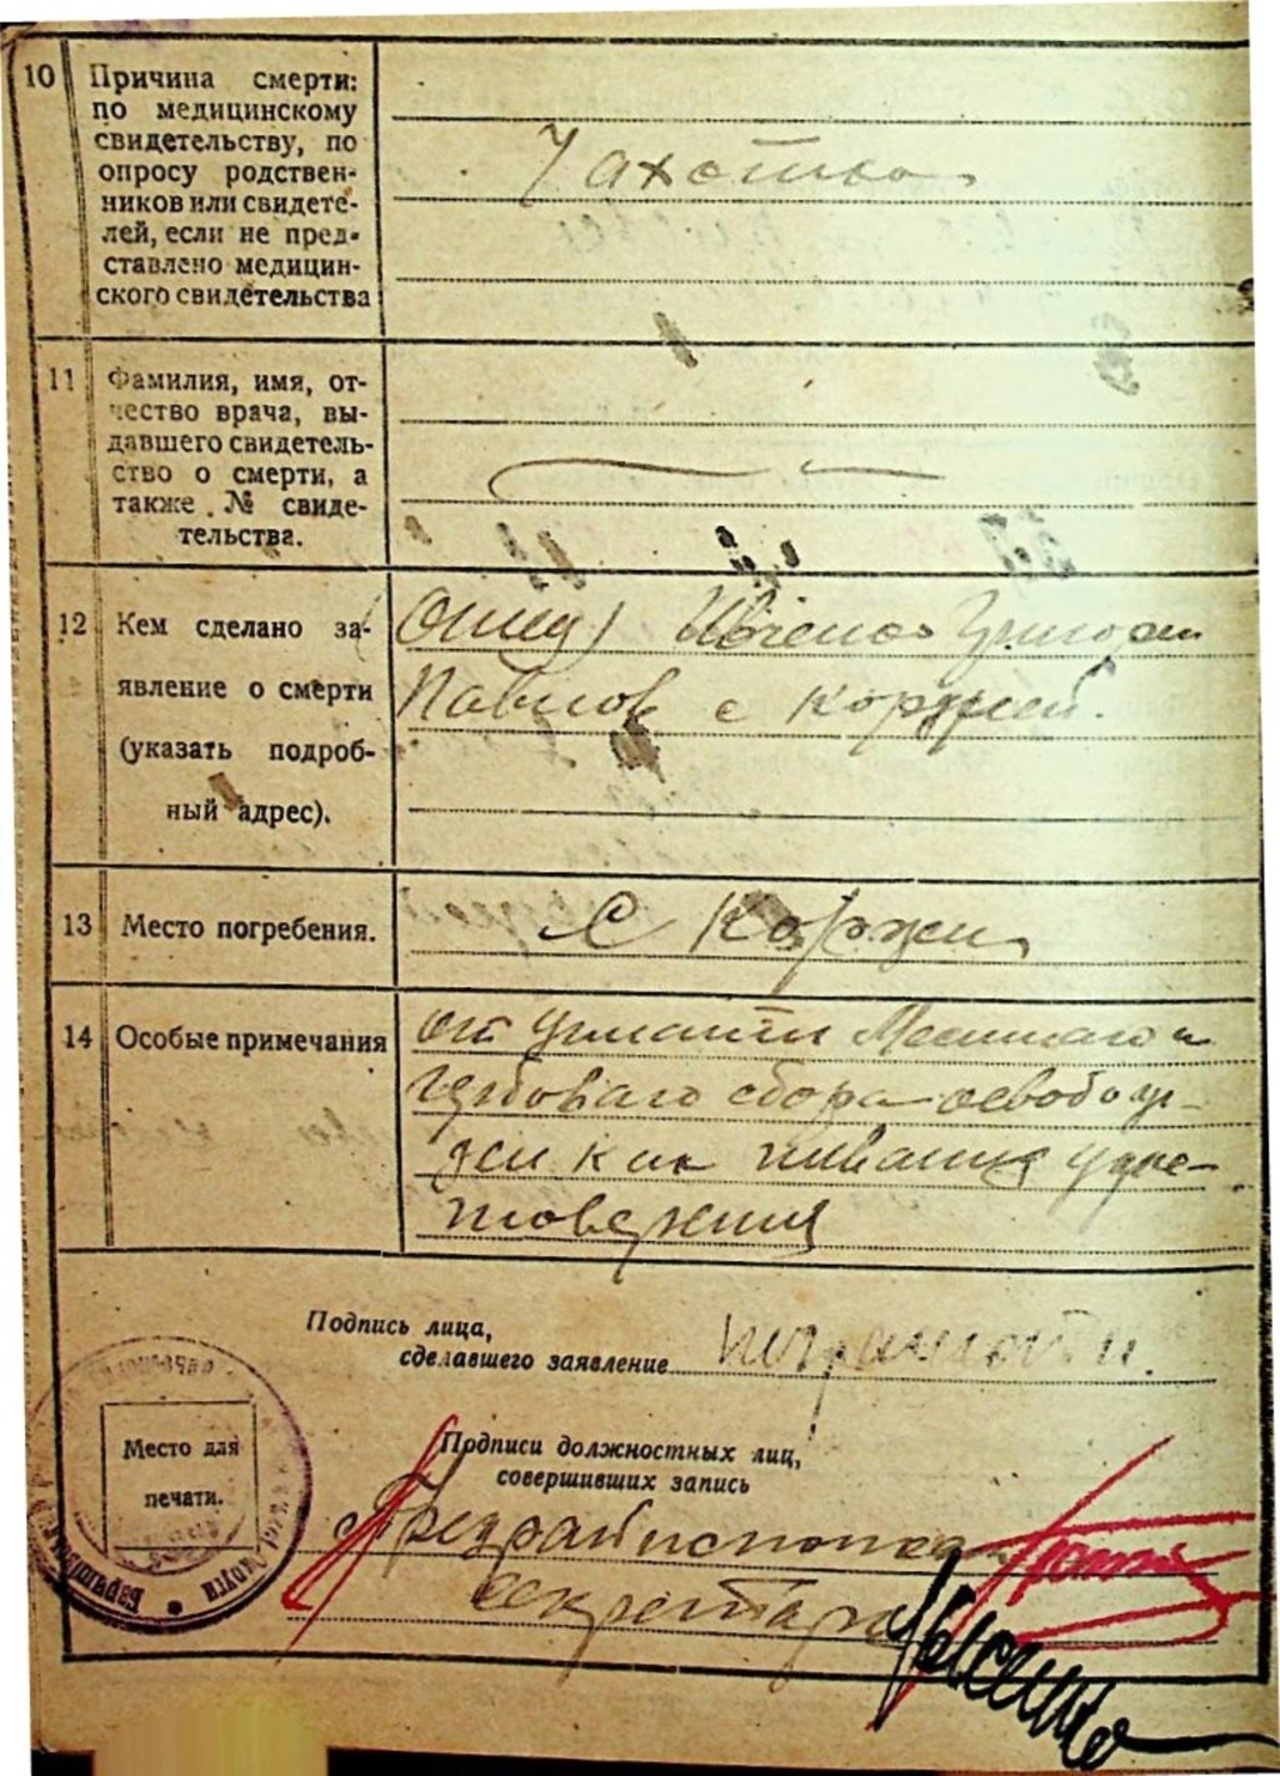 10 Причина смерти:
по медицинскому
свидетельству, по
опросу родствен-
ников или свидете-
лей, если не пред-
ставлено медицин-
ского свидетельства
Чахотка
11 Фамилия, имя, от-
чество врача, вы-
давшего свидетель-
ство о смерти, а
также № свиде-
тельства.
12 Кем сделано за-
явление о смерти
(указать подроб-
ный адрес).
Отец Григори
Павлов с Коржей.
13 Место погребения.
С Коржи
14 Особые примечания
От уплати Местнаго и
гербоваго сбора освобож-
ден как
Подпись лица,
сделавшего заявление
неграмотн.
Место для
печати.
Подписи должностных лиц,
совершивших запись
Предрайисполкома
Секретарь